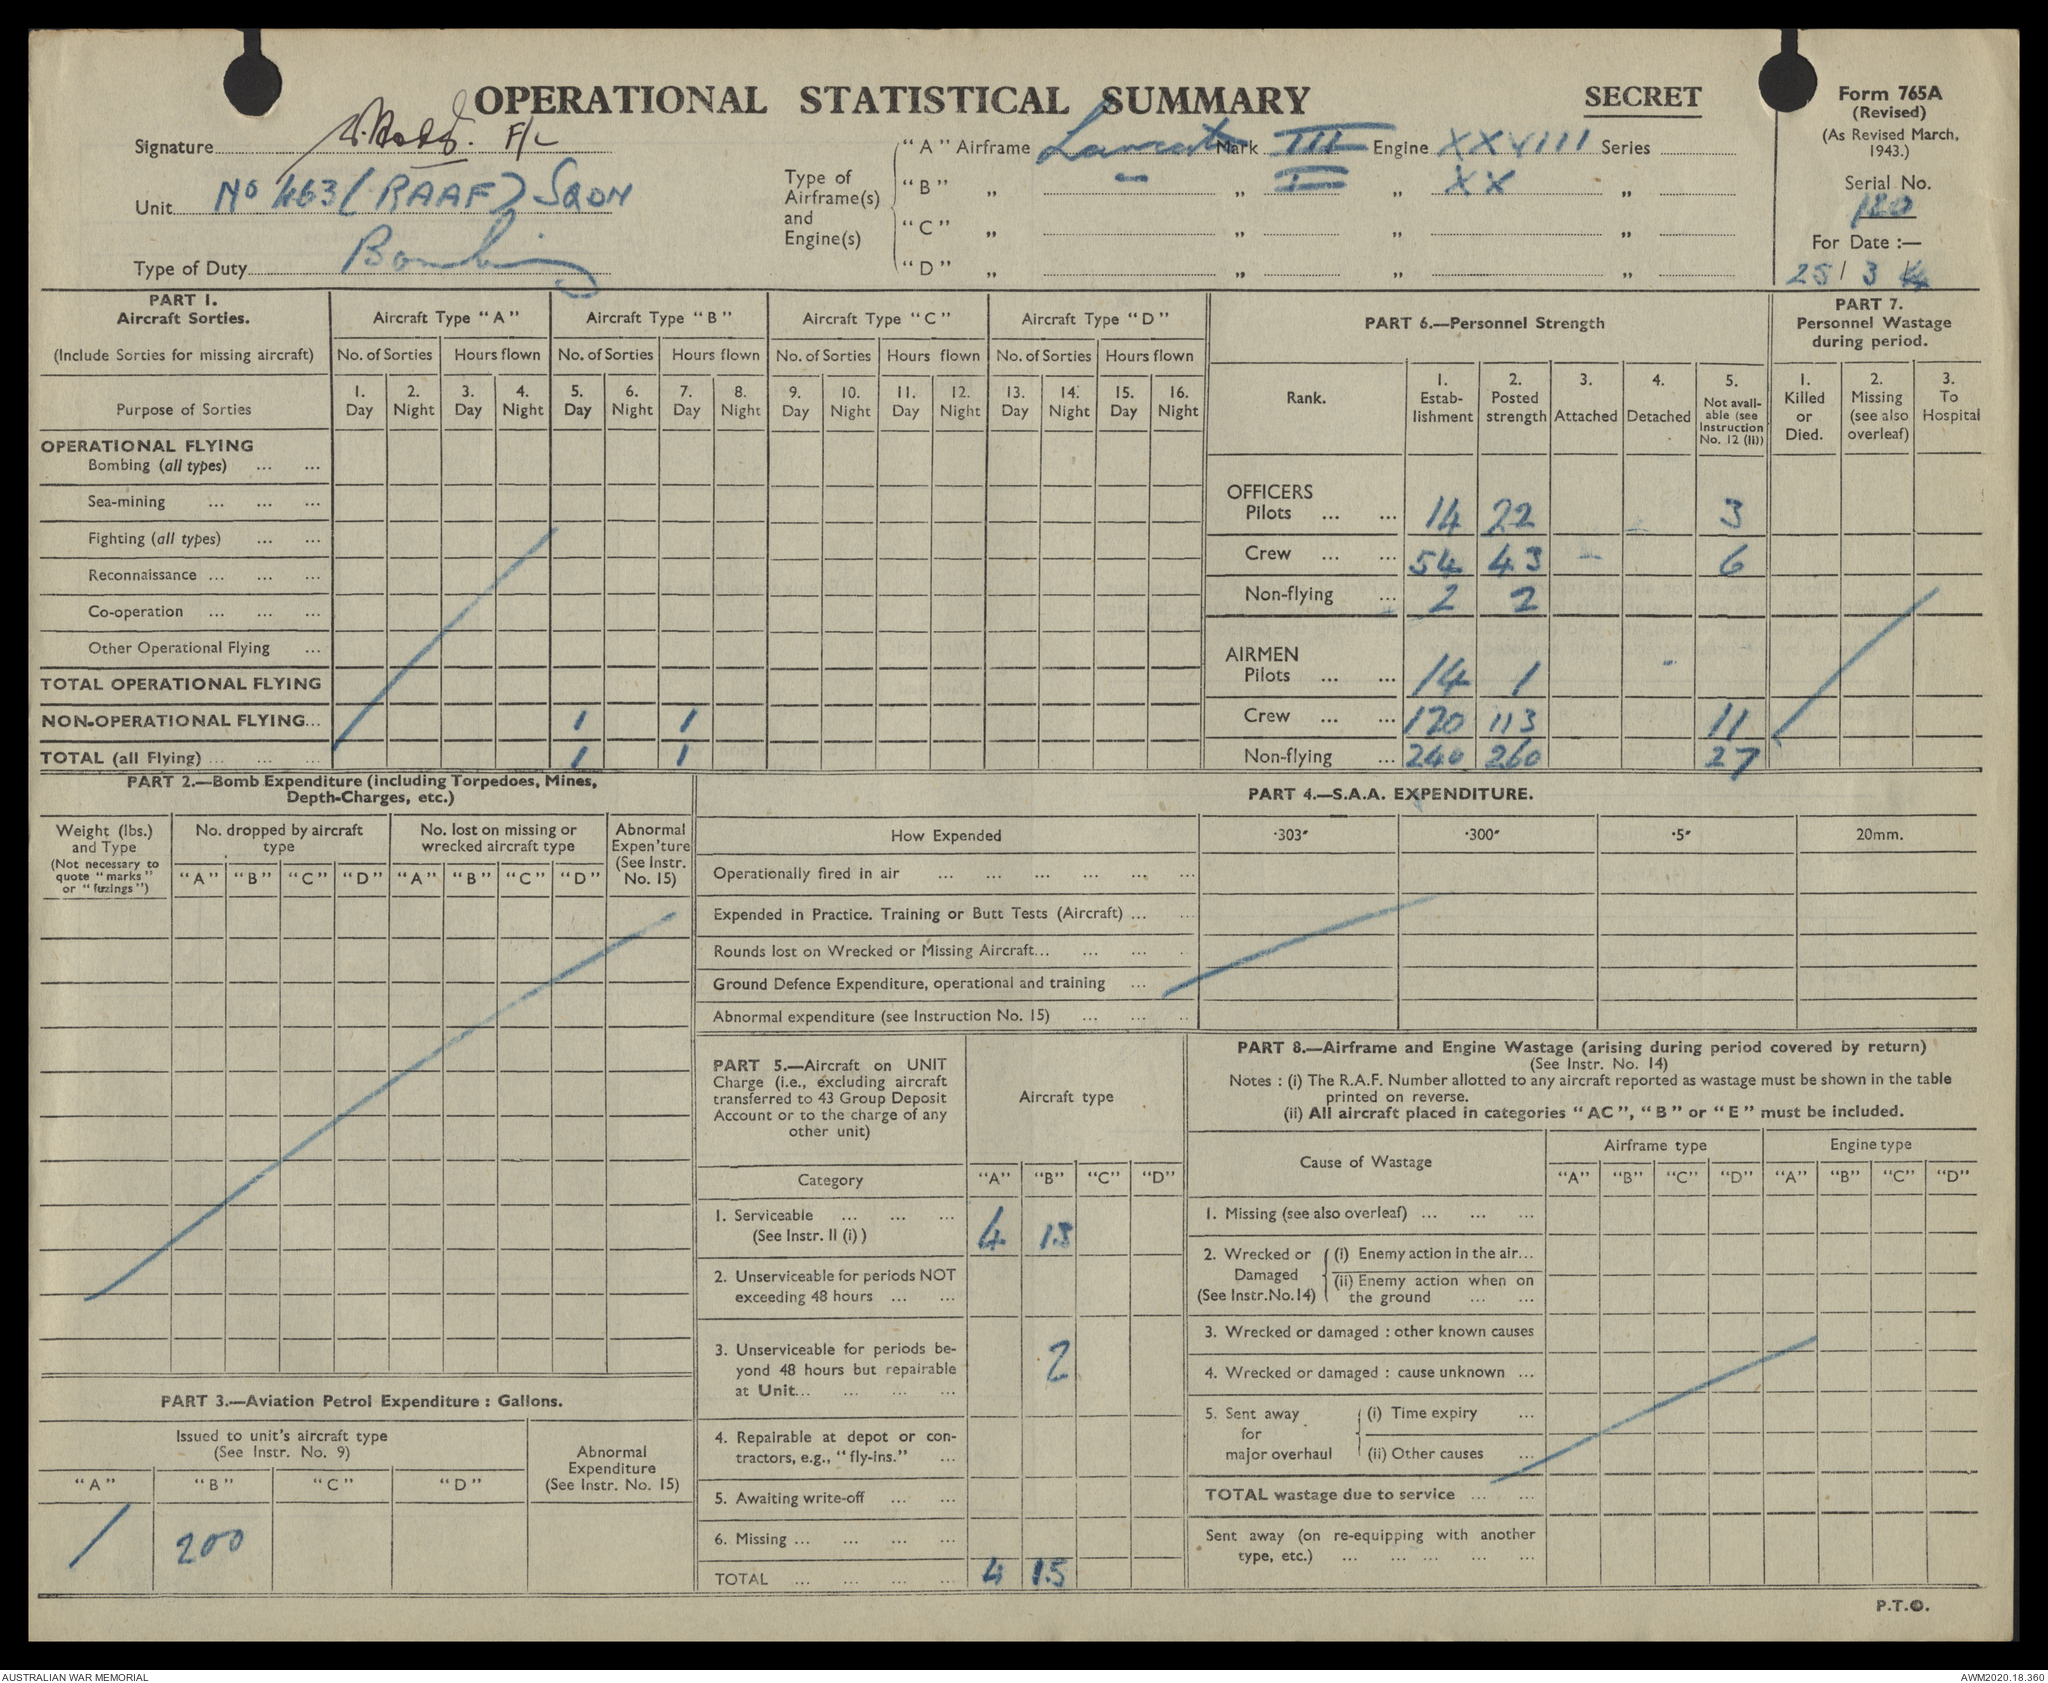 OPERATIONAL STATISTICAL SUMMARY
SECRET
Form 765A
(Revised)
(As Revised March,
1943.)
Serial No.
180
For Date :—
25/ 3
Signature F/L
Unit No 463 (RAAF) SQDN
Type of Duty Bombing
Type of
Airframe(s)
and
Engine(s)
"A" Airframe Lancaster Mark III Engine XXVIII Series
"B" „ — „ I „ XX „
"C" „ „ „ „
"D" „ „ „ „
PART 1.
Aircraft Sorties.
(Include Sorties for missing aircraft)
Purpose of Sorties
Aircraft Type "A" Aircraft Type "B" Aircraft Type "C" Aircraft Type "D"
No. of Sorties Hours flown No. of Sorties Hours flown No. of Sorties Hours flown No. of Sorties Hours flown
1. 2. 3. 4. 5. 6. 7. 8. 9. 10. 11. 12. 13. 14. 15. 16.
Day Night Day Night Day Night Day Night Day Night Day Night Day Night Day Night
OPERATIONAL FLYING
Bombing (all types) ... ...
Sea-mining ... ... ...
Fighting (all types) ... ...
Reconnaissance ... ... ...
Co-operation ... ... ...
Other Operational Flying ...
TOTAL OPERATIONAL FLYING
NON-OPERATIONAL FLYING... 1 1
TOTAL (all Flying) ... ... ... 1 1
PART 6.—Personnel Strength
Rank.
1. Estab-lishment
2. Posted strength
3. Attached
4. Detached
5. Not avail-able (see Instruction No. 12 (II))
OFFICERS
Pilots ... ... 14 22 3
Crew ... ... 54 43 — 6
Non-flying ... 2 2
AIRMEN
Pilots ... ... 14 1
Crew ... ... 120 113 11
Non-flying ... 240 260 27
PART 7.
Personnel Wastage
during period.
1. Killed or Died.
2. Missing (see also overleaf)
3. To Hospital
PART 2.—Bomb Expenditure (including Torpedoes, Mines,
Depth-Charges, etc.)
Weight (lbs.)
and Type
(Not necessary to
quote "marks"
or "fuzings")
No. dropped by aircraft
type
No. lost on missing or
wrecked aircraft type
Abnormal
Expen'ture
(See Instr.
No. 15)
"A" "B" "C" "D" "A" "B" "C" "D"
PART 4.—S.A.A. EXPENDITURE.
How Expended ·303" ·300" ·5" 20mm.
Operationally fired in air ... ... ... ... ... ...
Expended in Practice. Training or Butt Tests (Aircraft) ... ...
Rounds lost on Wrecked or Missing Aircraft... ... ... ..
Ground Defence Expenditure, operational and training ...
Abnormal expenditure (see Instruction No. 15) ... ... ..
PART 3.—Aviation Petrol Expenditure : Gallons.
Issued to unit's aircraft type
(See Instr. No. 9)
Abnormal
Expenditure
(See Instr. No. 15)
"A" "B" "C" "D"
/ 200
PART 5.—Aircraft on UNIT
Charge (i.e., excluding aircraft
transferred to 43 Group Deposit
Account or to the charge of any
other unit)
Aircraft type
Category "A" "B" "C" "D"
1. Serviceable ... ... ...
(See Instr. II (i) ) 4 13
2. Unserviceable for periods NOT
exceeding 48 hours ... ...
3. Unserviceable for periods be-
yond 48 hours but repairable 2
at Unit... ... ... ...
4. Repairable at depot or con-
tractors, e.g., "fly-ins." ...
5. Awaiting write-off ... ...
6. Missing ... ... ... ...
TOTAL ... ... ... ... 4 15
PART 8.—Airframe and Engine Wastage (arising during period covered by return)
(See Instr. No. 14)
Notes : (i) The R.A.F. Number allotted to any aircraft reported as wastage must be shown in the table
printed on reverse.
(ii) All aircraft placed in categories "AC", "B" or "E" must be included.
Cause of Wastage
Airframe type Engine type
"A" "B" "C" "D" "A" "B" "C" "D"
1. Missing (see also overleaf) ... ... ...
2. Wrecked or Damaged (See Instr.No.14)
(i) Enemy action in the air...
(ii) Enemy action when on
the ground ... ...
3. Wrecked or damaged : other known causes
4. Wrecked or damaged : cause unknown ...
5. Sent away for major overhaul
(i) Time expiry ...
(ii) Other causes ...
TOTAL wastage due to service ... ...
Sent away (on re-equipping with another
type, etc.) ... ... ... ... ...
P.T.O.
AUSTRALIAN WAR MEMORIAL
AWM2020.18.360